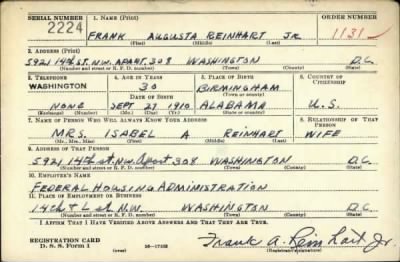 SERIAL NUMBER 1. NAME (Print) ORDER NUMBER
2224 FRANK AUGUSTA REINHART JR 1131
(First) (Middle) (Last)
2. ADDRESS (Print)
5921 14th ST. N.W. APART. 308 WASHINGTON D.C.
(Number and street or R. F. D. number) (Town) (County) (State)
3. TELEPHONE 4. AGE IN YEARS 5. PLACE OF BIRTH 6. COUNTRY OF CITIZENSHIP
WASHINGTON 30 BIRMINGHAM
DATE OF BIRTH (Town or county)
NONE SEPT 27 1910 ALABAMA U.S.
(Exchange) (Number) (Mo.) (Day) (Yr.) (State or country)
7. NAME OF PERSON WHO WILL ALWAYS KNOW YOUR ADDRESS 8. RELATIONSHIP OF THAT PERSON
MRS. ISABEL A REINHART WIFE
(Mr., Mrs., Miss) (First) (Middle) (Last)
9. ADDRESS OF THAT PERSON
5921 14th st. N.W. Apart 308 WASHINGTON D.C.
(Number and street or R. F. D. number) (Town) (County) (State)
10. EMPLOYER'S NAME
FEDERAL HOUSING ADMINISTRATION
11. PLACE OF EMPLOYMENT OR BUSINESS
14th & L st N.W. WASHINGTON D.C.
(Number and street or R. F. D. number) (Town) (County) (State)
I AFFIRM THAT I HAVE VERIFIED ABOVE ANSWERS AND THAT THEY ARE TRUE.
REGISTRATION CARD
D. S. S. Form 1 (over) 16—17105 Frank A. Reinhart Jr.